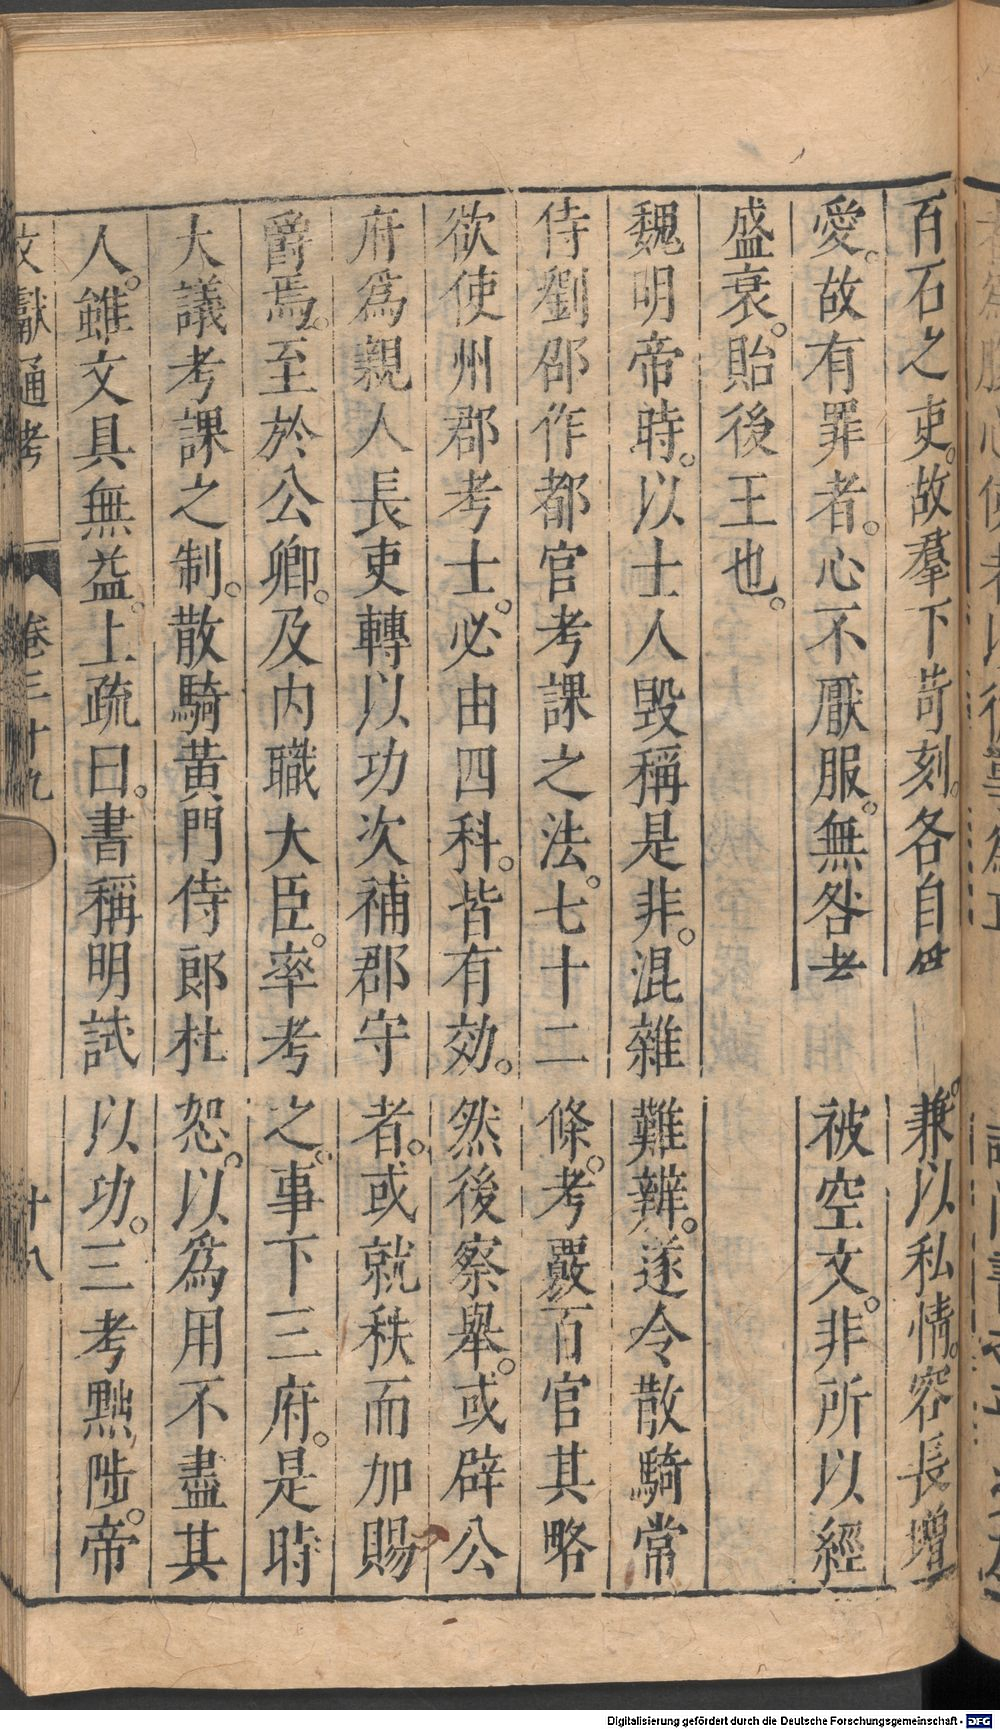 百石之吏。故羣下苛刻。各自 兼以私情。容長增
愛。故有罪者。心不厭服。無咎者 被空文。非所以經
盛衰。貽後王也。
魏明帝時。以士人毀稱是非。混雜難辨。遂令散騎常
侍劉邵作都官考課之法。七十二條。考覈百官其略
欲使州郡考士。必由四科。皆有効。然後察舉。或辟公
府爲親人長吏轉以功次補郡守者。或就秩而加賜
爵焉。至於公卿。及内職大臣。率考之。事下三府。是時
大議考課之制。散騎黄門侍郎杜恕。以爲用不盡其
人。雖文具無益。上疏曰。書稱明試以功。三考黜陟。帝
文獻通考 卷三十九 十八
Digitalisierung gefördert durch die Deutsche Forschungsgemeinschaft - DFG